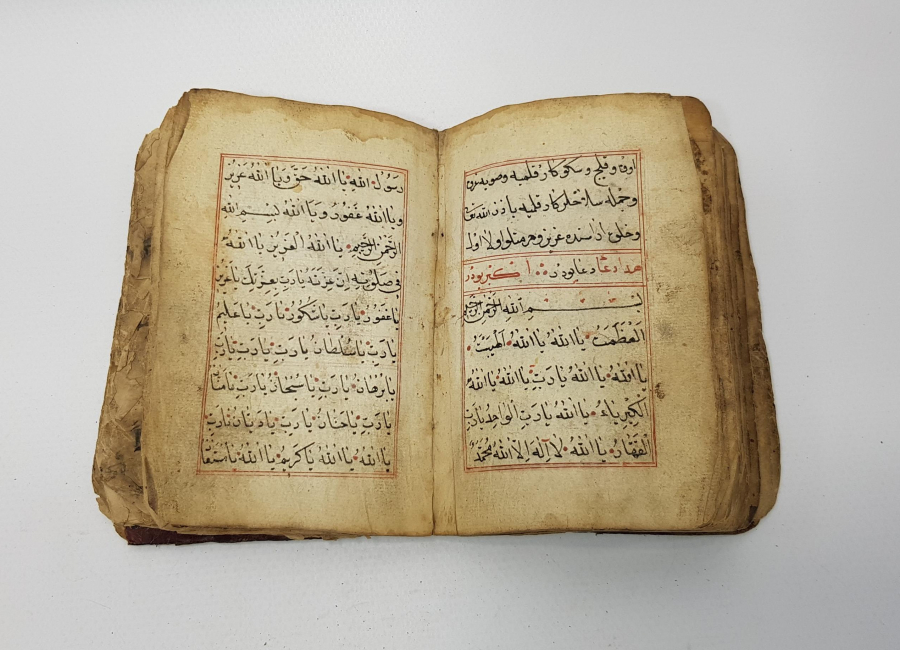 اوزه و قلیج و سکو کار قلمیه و صویه
و جمله سلاح لر کار قلیه یا ذن الله تعالی
و خلق اراسنده عزیز و حرمتلو اولا
هذا دعا
بسم الله الرحمن الرحيم
العظمت يا الله يا الله الهيبت
يا الله يا الله يا رب يا الله يا الله
الكبرياء يا الله يا رب الواحد يا رب
القهار يا الله لا اله الا الله محمد
رسول الله يا الله حق و يا الله عزيز
و يا الله غفور و يا الله بسم الله
الرحمن الرحيم يا الله العزيز يا الله
يا رب بعزتك يا عزيز
يا غفور يا رب يا شكور يا رب يا عليم
يا رب يا سلطان يا رب يا رب يا رب
يا برهان يا رب يا سبحان يا رب يا منان
يا رب يا حنان يا رب يا ديان يا رب
يا الله يا الله يا كريم يا الله